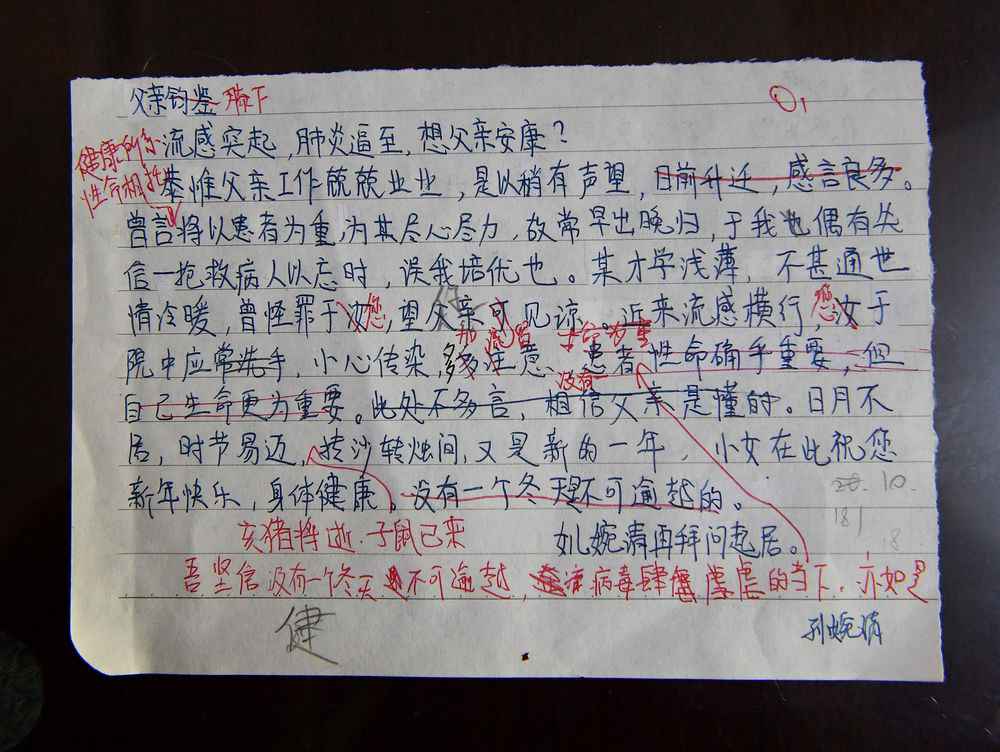 父亲钧鉴 膝下
健康所系
性命相托
流感突起，肺炎逼至，想父亲安康？
恭惟父亲工作兢兢业业，是以稍有声望，日前升迁，感言良多。
曾言将以患者为重，为其尽心尽力，故常早出晚归，于我也偶有失
信一抢救病人以忘时，误我培优也。某才学浅薄，不甚通世
情冷暖，曾怪罪于汝您，望父亲可见谅。近来流感横行，您汝于
院中应常洗手，小心传染，多注意、患者性命确乎重要，但
自己生命更为重要。此处不多言，相信父亲是懂的。日月不
居，时节易迈，抟沙转烛间，又是新的一年，小女在此祝您
新年快乐，身体健康。没有一个冬天是不可逾越的。
亥猪将逝，子鼠已来
女儿婉清再拜问起居。
吾坚信没有一个冬天不可逾越，病毒肆虐的当下，亦如是
健
孙婉清